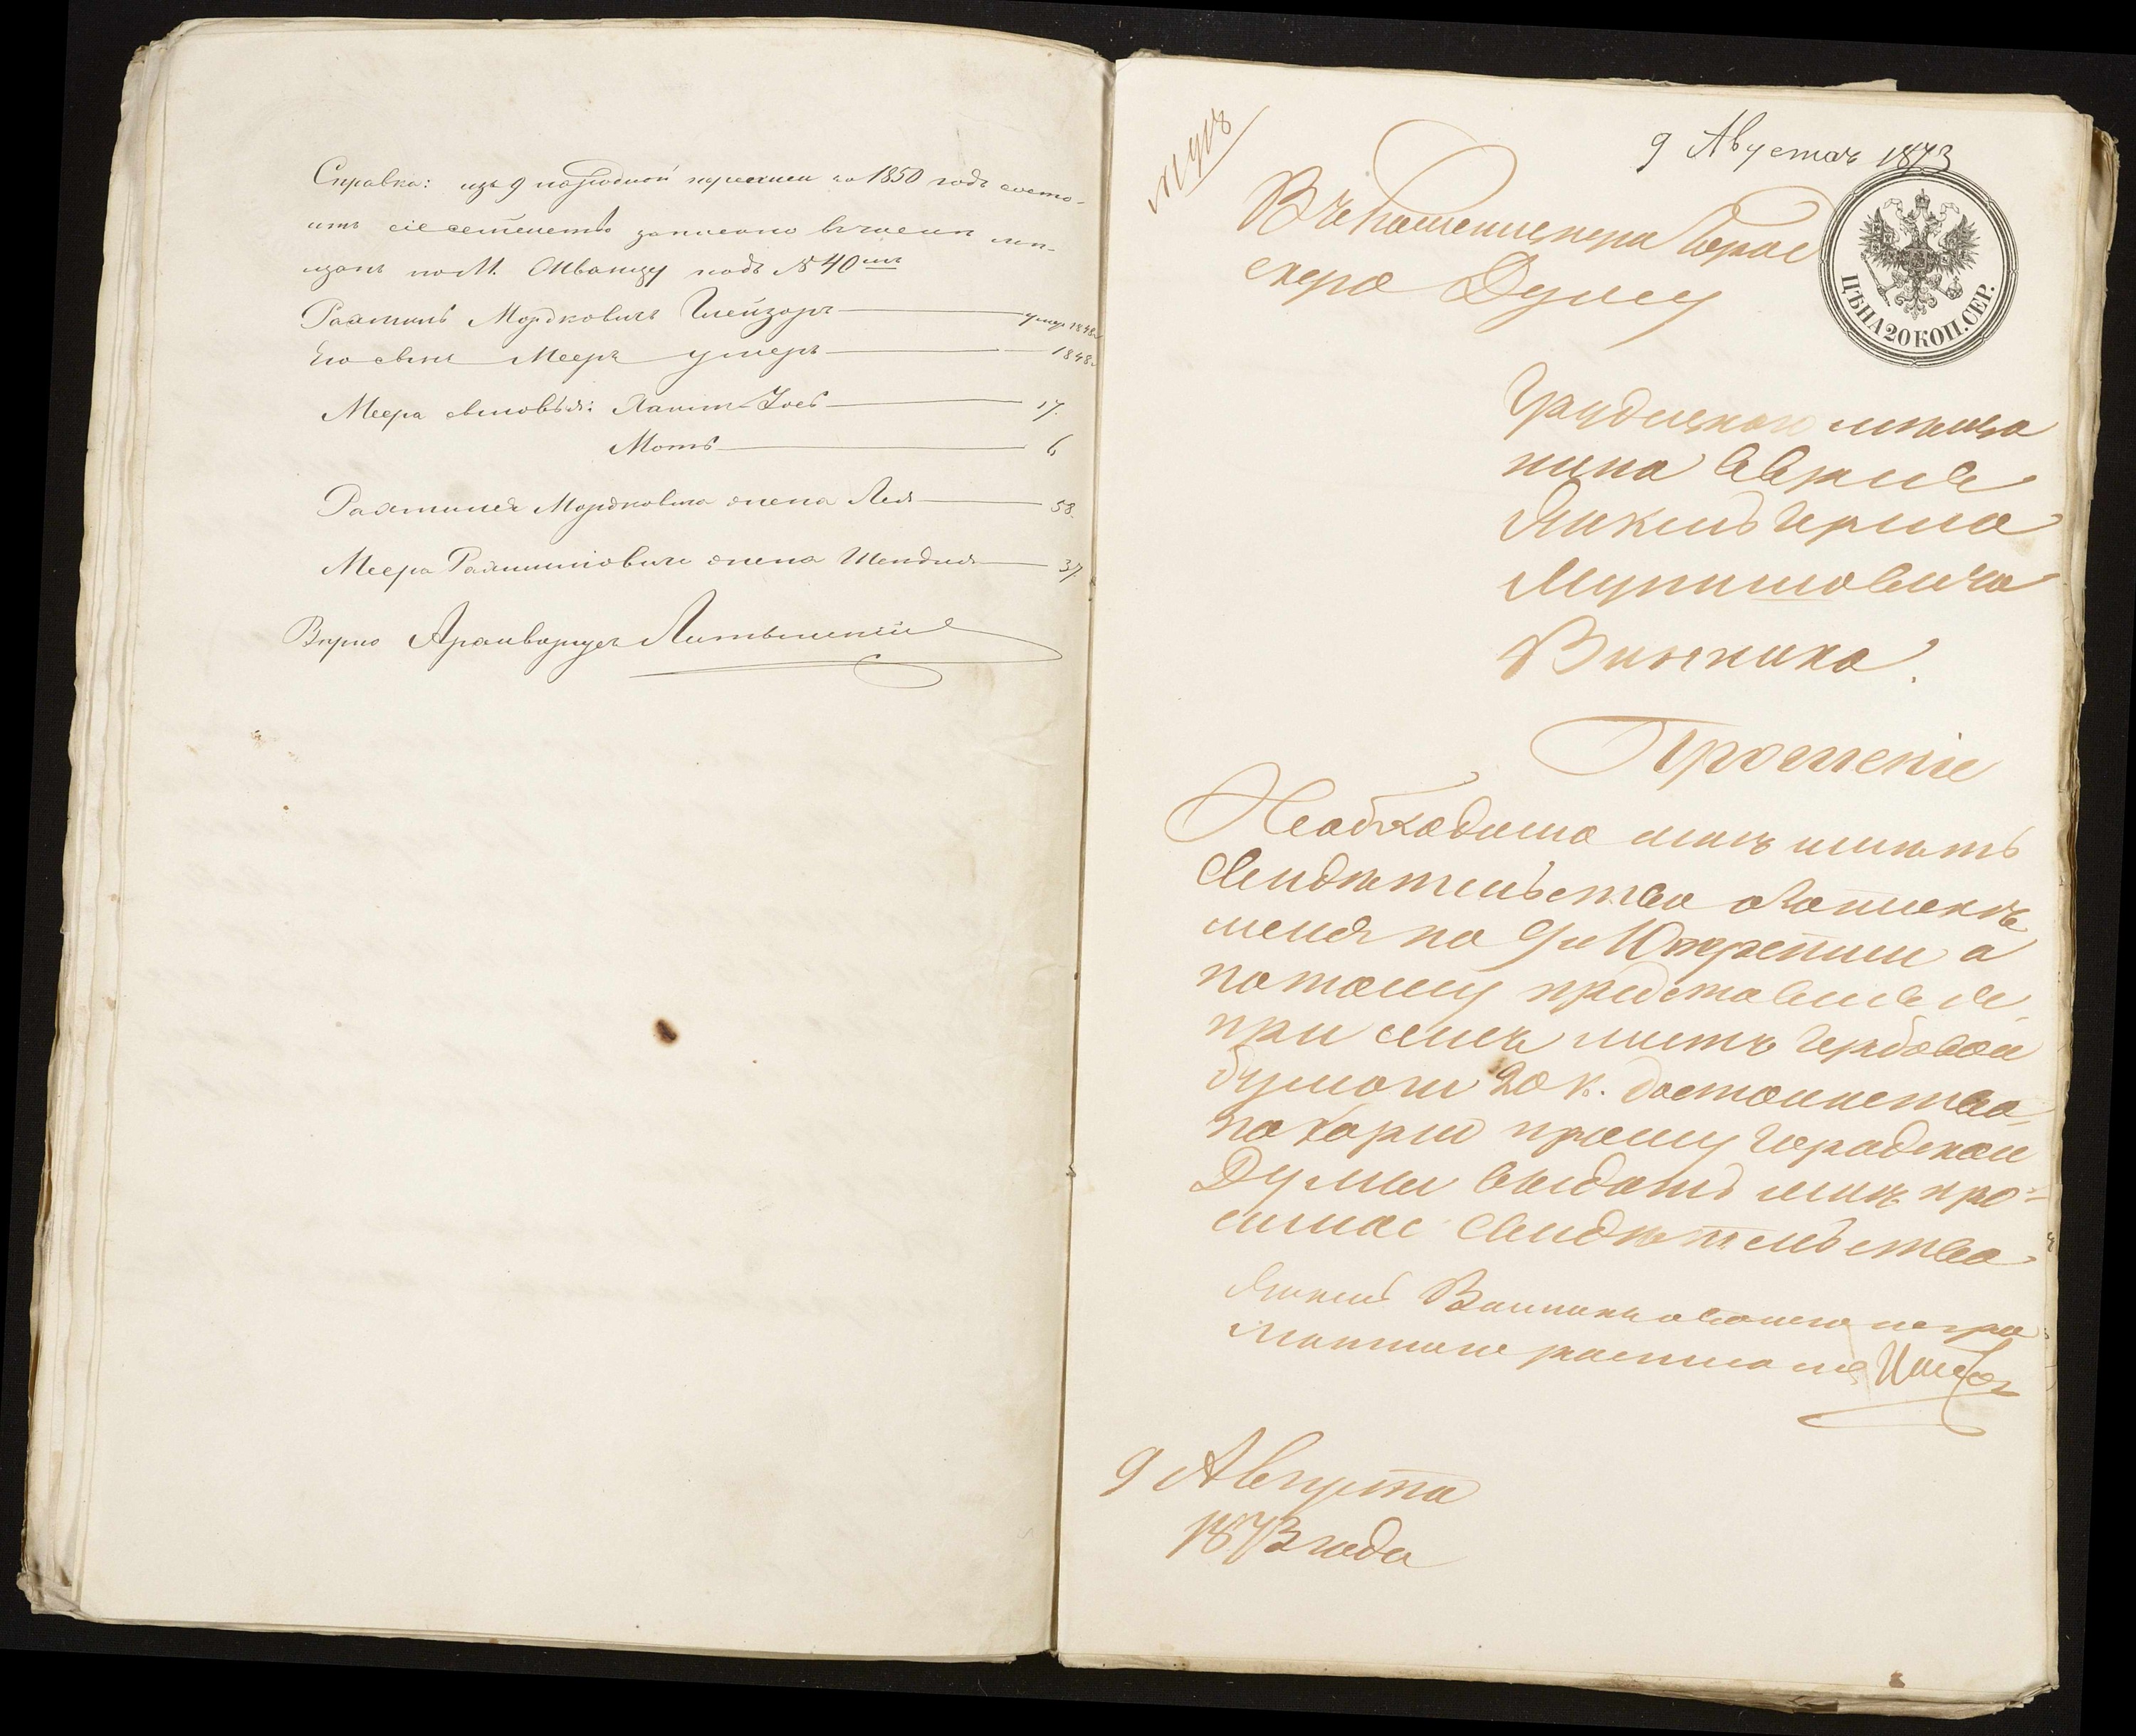 Справка: изъ 9 народной переписи за 1850 годъ состо-
итъ сіе семействѣ записано въ числѣ мѣ-
щанъ по М. Жванцу подъ № 40мъ
Рахмиль Мордковичъ Глейзоръ умеръ 1848г
Его сынъ Мееръ умеръ 1848г
Меера сыновья: Хаимъ-Зось 17.
Мотъ 6
Рахмиля Мордковича жена Лея 58.
Меера Рахмиліовича жена Шендля 37
Вѣрно Архиваріусъ Литвинскій
9 Августа 1873
Въ Каменецкую Город
скую Думу
ЦѢНА 20 КОП. СЕР.
мѣща
нина Еврея
Янкель Герша
Винника.
Прошеніе
Необходимо мнѣ имѣть
свидѣтельство о запискѣ
меня по 9 и 10 ревизіи а
потому представляя
при семъ листъ гербовой
бумаги 20 к. достоинства
покорно прошу Городской
Думы выдать мнѣ про-
симое свидѣтельство
Янкель Винникъ а вместо негра
мотного росписался
9 Августа
1873 года